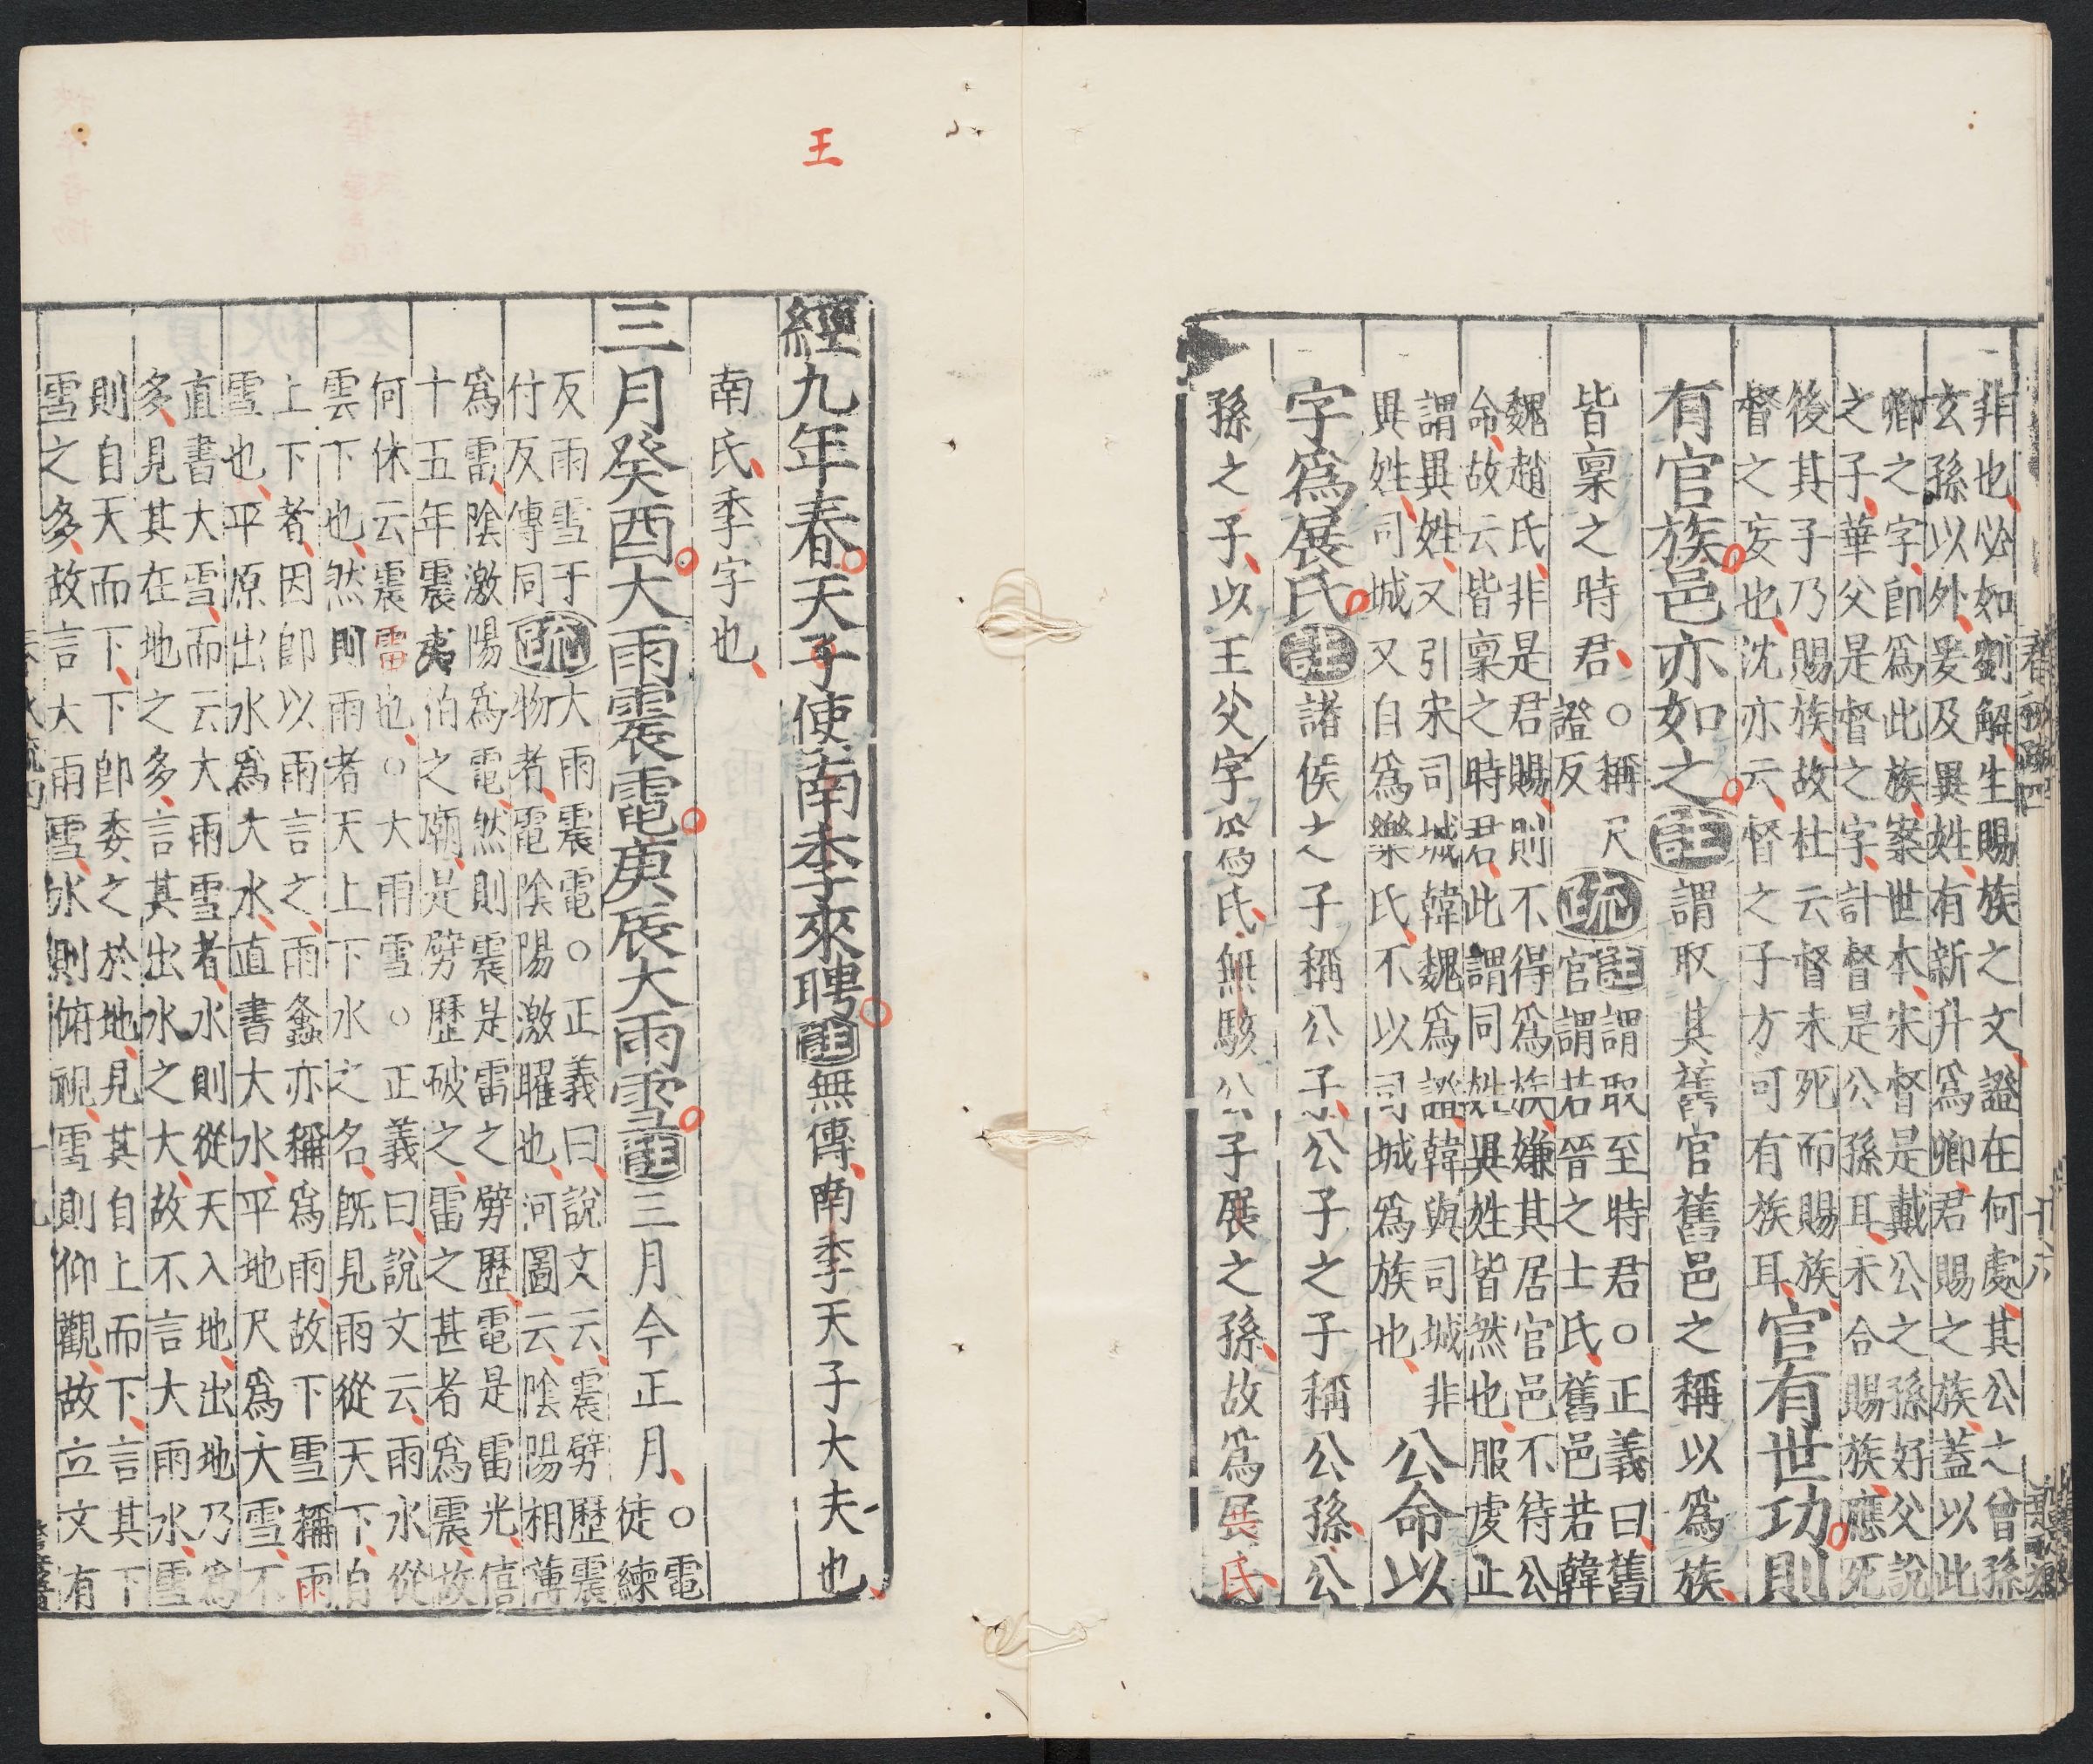 非也必如劉解生賜族之文證在何處其公之曾孫
玄孫以外爰及異姓有新升爲卿君賜之族蓋以此
卿之字卽爲此族案世本宋督是戴公之孫好父說
之子華父是督之字計督是公孫耳未合賜族應死
後其子乃賜族故杜云督未死而賜族
督之妄也沈亦云督之子方可有族耳
官有世功則
有官族邑亦如之
註
謂取其舊官舊邑之稱以爲族
皆稟之時君
○稱尺
證反
疏
註謂取至時君○正義曰舊
官謂若晉之士氏舊邑若韓
魏趙氏非是君賜則不得爲族嫌其居官邑不待公
命故云皆稟之時君此謂同姓異姓皆然也服虔止
謂異姓又引宋司城韓魏爲證韓與司城非
異姓司城又自爲樂氏不以司城爲族也
公命以
字爲展氏
註
諸侯之子稱公子公子之子稱公孫公
孫之子以王父字爲氏無駭公子展之孫故爲展氏
王
經九年春天子使南季來聘
註
無傳南季天子大夫也
南氏季字也
三月癸酉大雨震電庚辰大雨雪
註
三月今正月
○電
徒練
反雨雪于
付反傳同
疏
大雨震電○正義曰說文云震劈歷震
物者電陰陽激曜也河圖云陰陽相薄
爲雷陰激陽爲電然則震是雷之劈歷電是雷光僖
十五年震夷伯之廟是劈歷破之雷之甚者爲震故
何休云震雷也○大雨雪○正義曰說文云雨水從
雲下也然則雨者天上下水之名旣見雨從天下自
上下者因卽以雨言之雨螽亦稱爲雨故下雪稱雨
雪也平原出水爲大水直書大水平地尺爲大雪不
直書大雪而云大雨雪者水則從天入地出地乃爲
多見其在地之多言其出水之大故不言大雨水雪
則自天而下下卽委之於地見其自上而下言其下
雪之多故言大雨雪水則俯視雪則仰觀故立文有